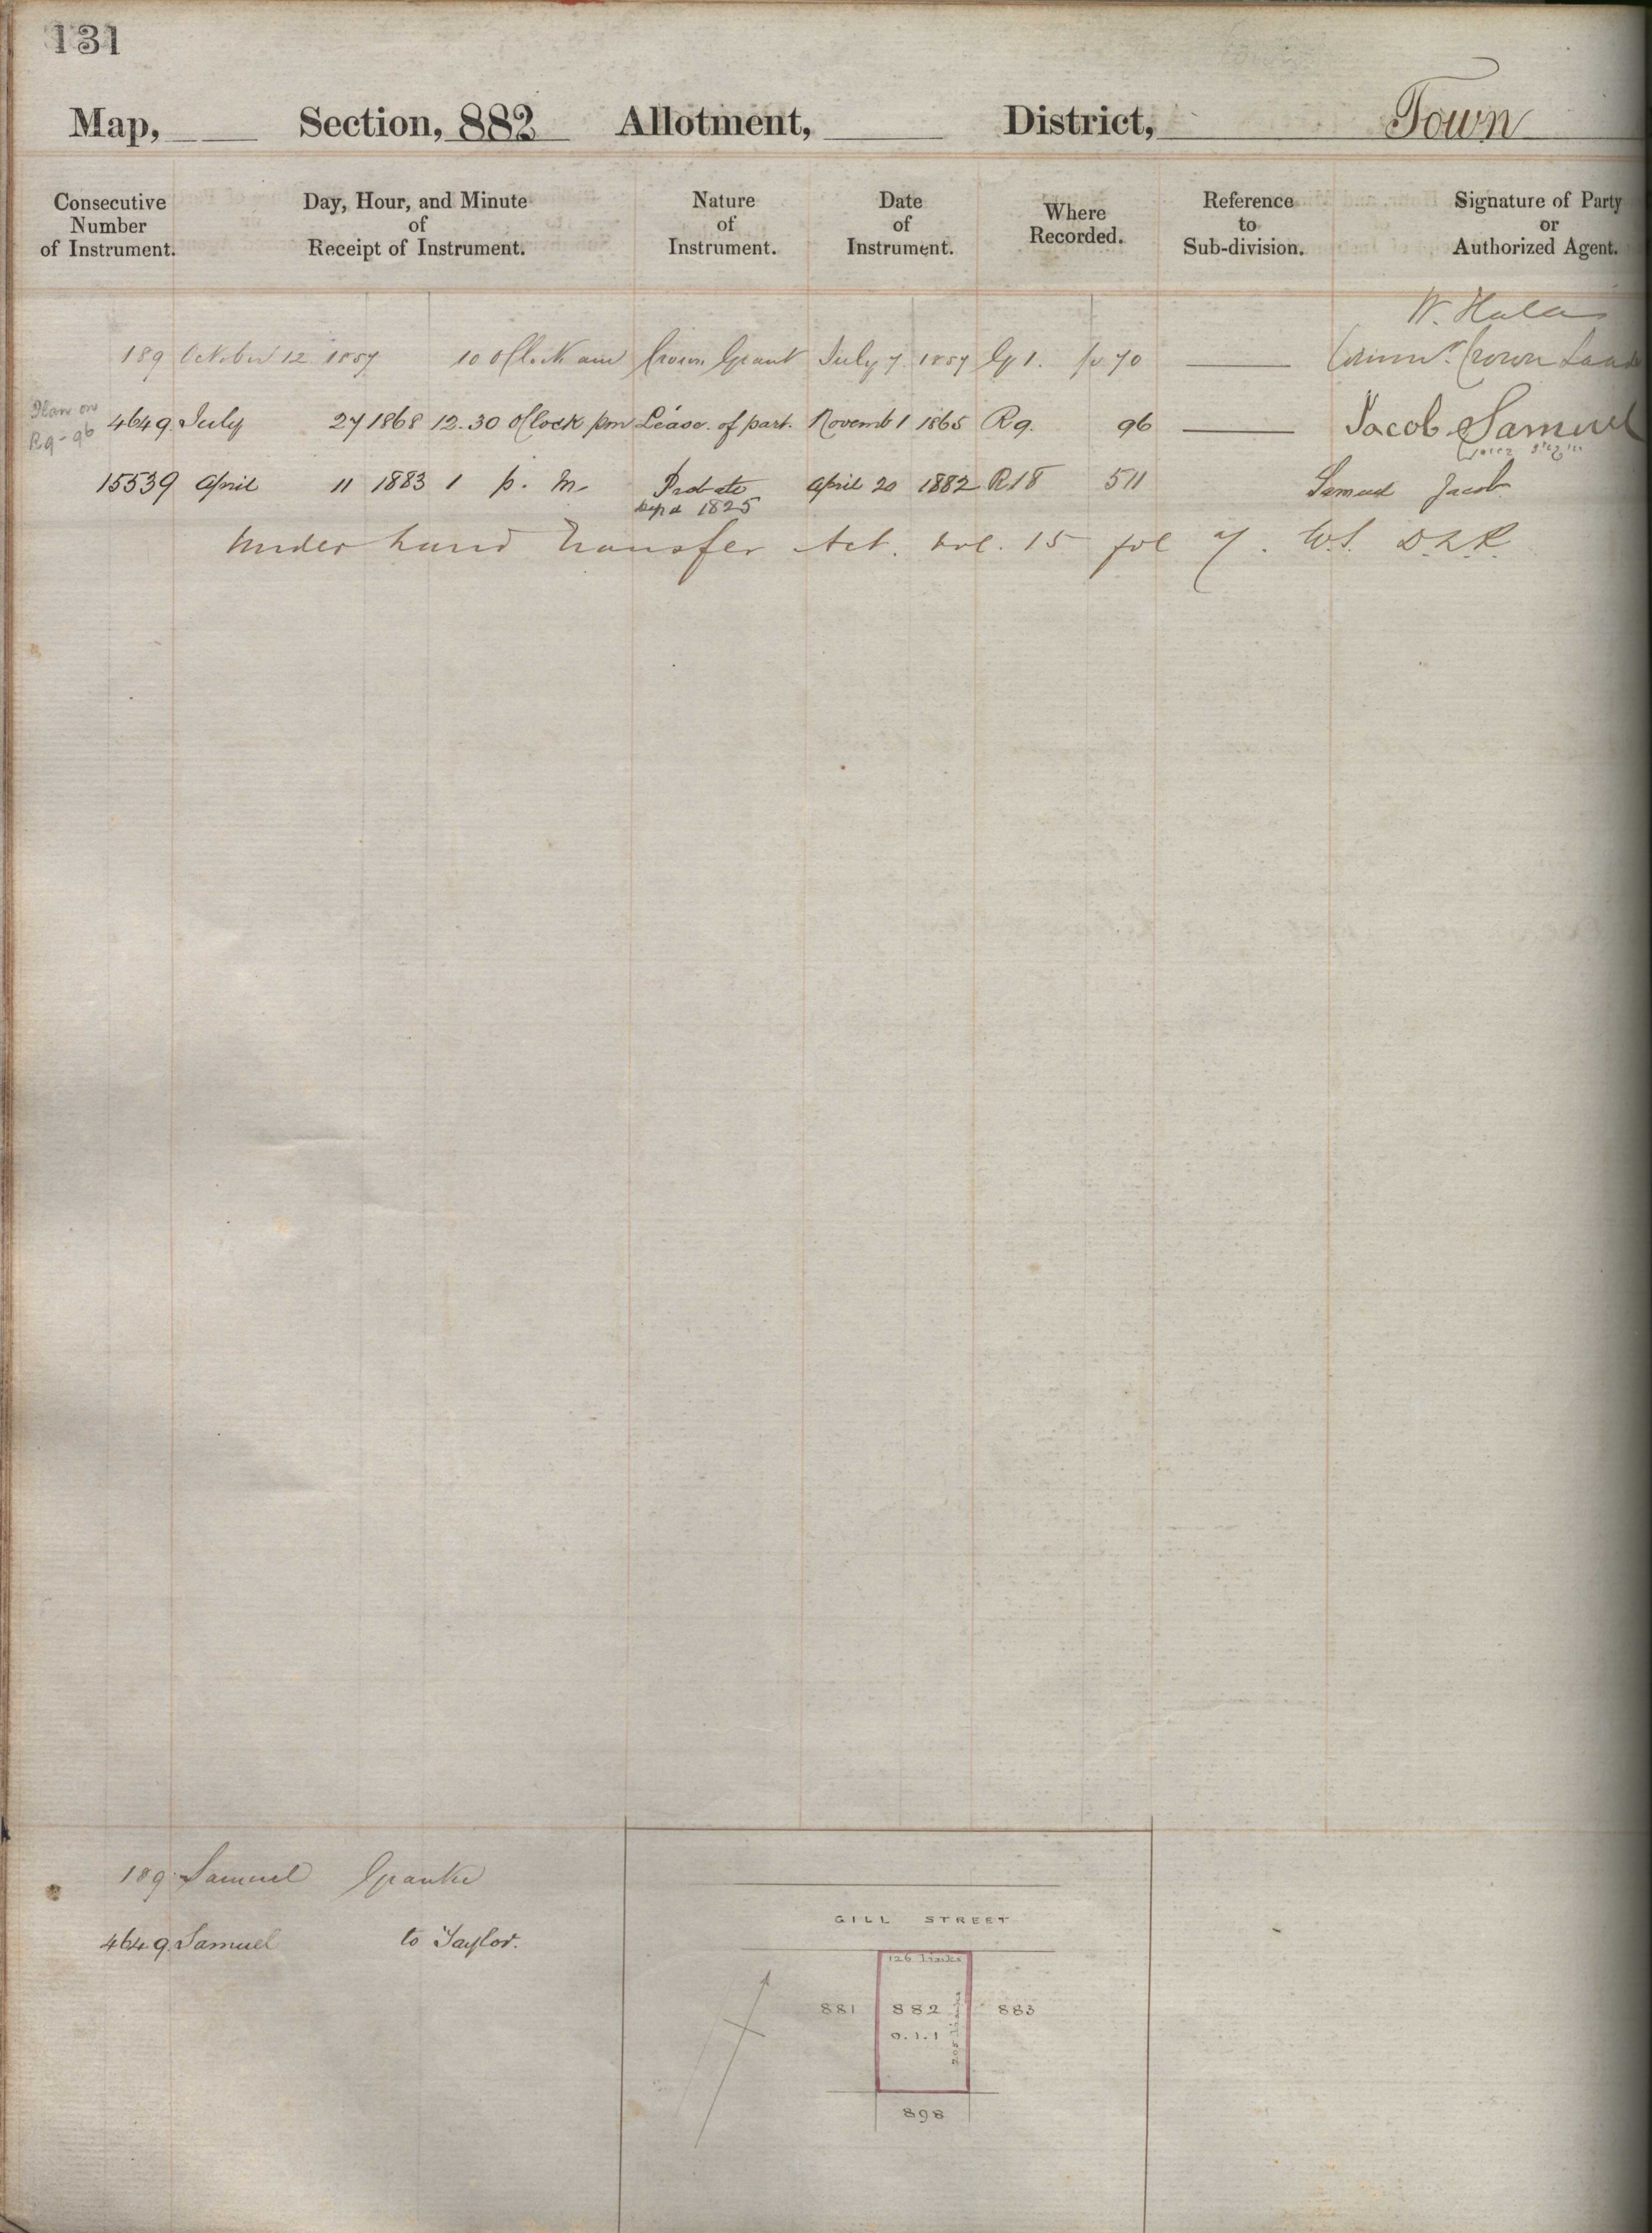 131
Map, Section, 882 Allotment, District, Town
Consecutive Number of Instrument.
Day, Hour, and Minute of Receipt of Instrument.
Nature of Instrument.
Date of Instrument.
Where Recorded.
Reference to Sub-division.
Signature of Party or Authorized Agent.
W. Halse
189 October 12 1857 10 oClock am Crown Grant July 7. 1857 G 1. fo 70 Commr. Crown Lands
Plan on
R9-96
4649. July 27 1868 12.30 oClock pm Lease. of part. Novemb 1 1865 R9. 96 Jacob Samuel
15539 April 11 1883 1 p. m. Probate April 20 1882 R18 511 Samuel Jacob
Depd 1825
Under Land Transfer Act. Vol. 15 fol 7. W.S. D.L.R.
189 Samuel Grantee
4649. Samuel to Taylor.
GILL STREET
126 links
881 882 883
0.1.1
205 links
898